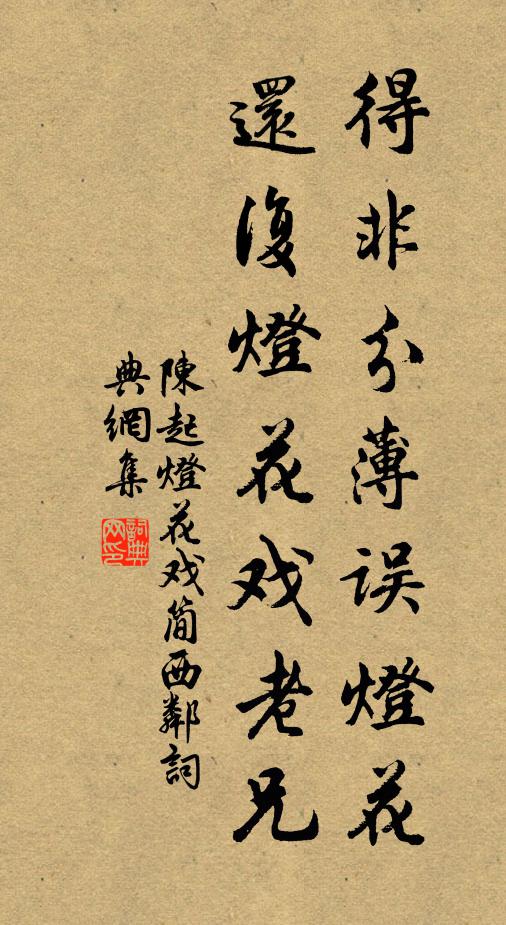 得非分薄误燈花
還復燈花戏老兄
陳起燈花戏简西鄰詞
典網集
詞典网印